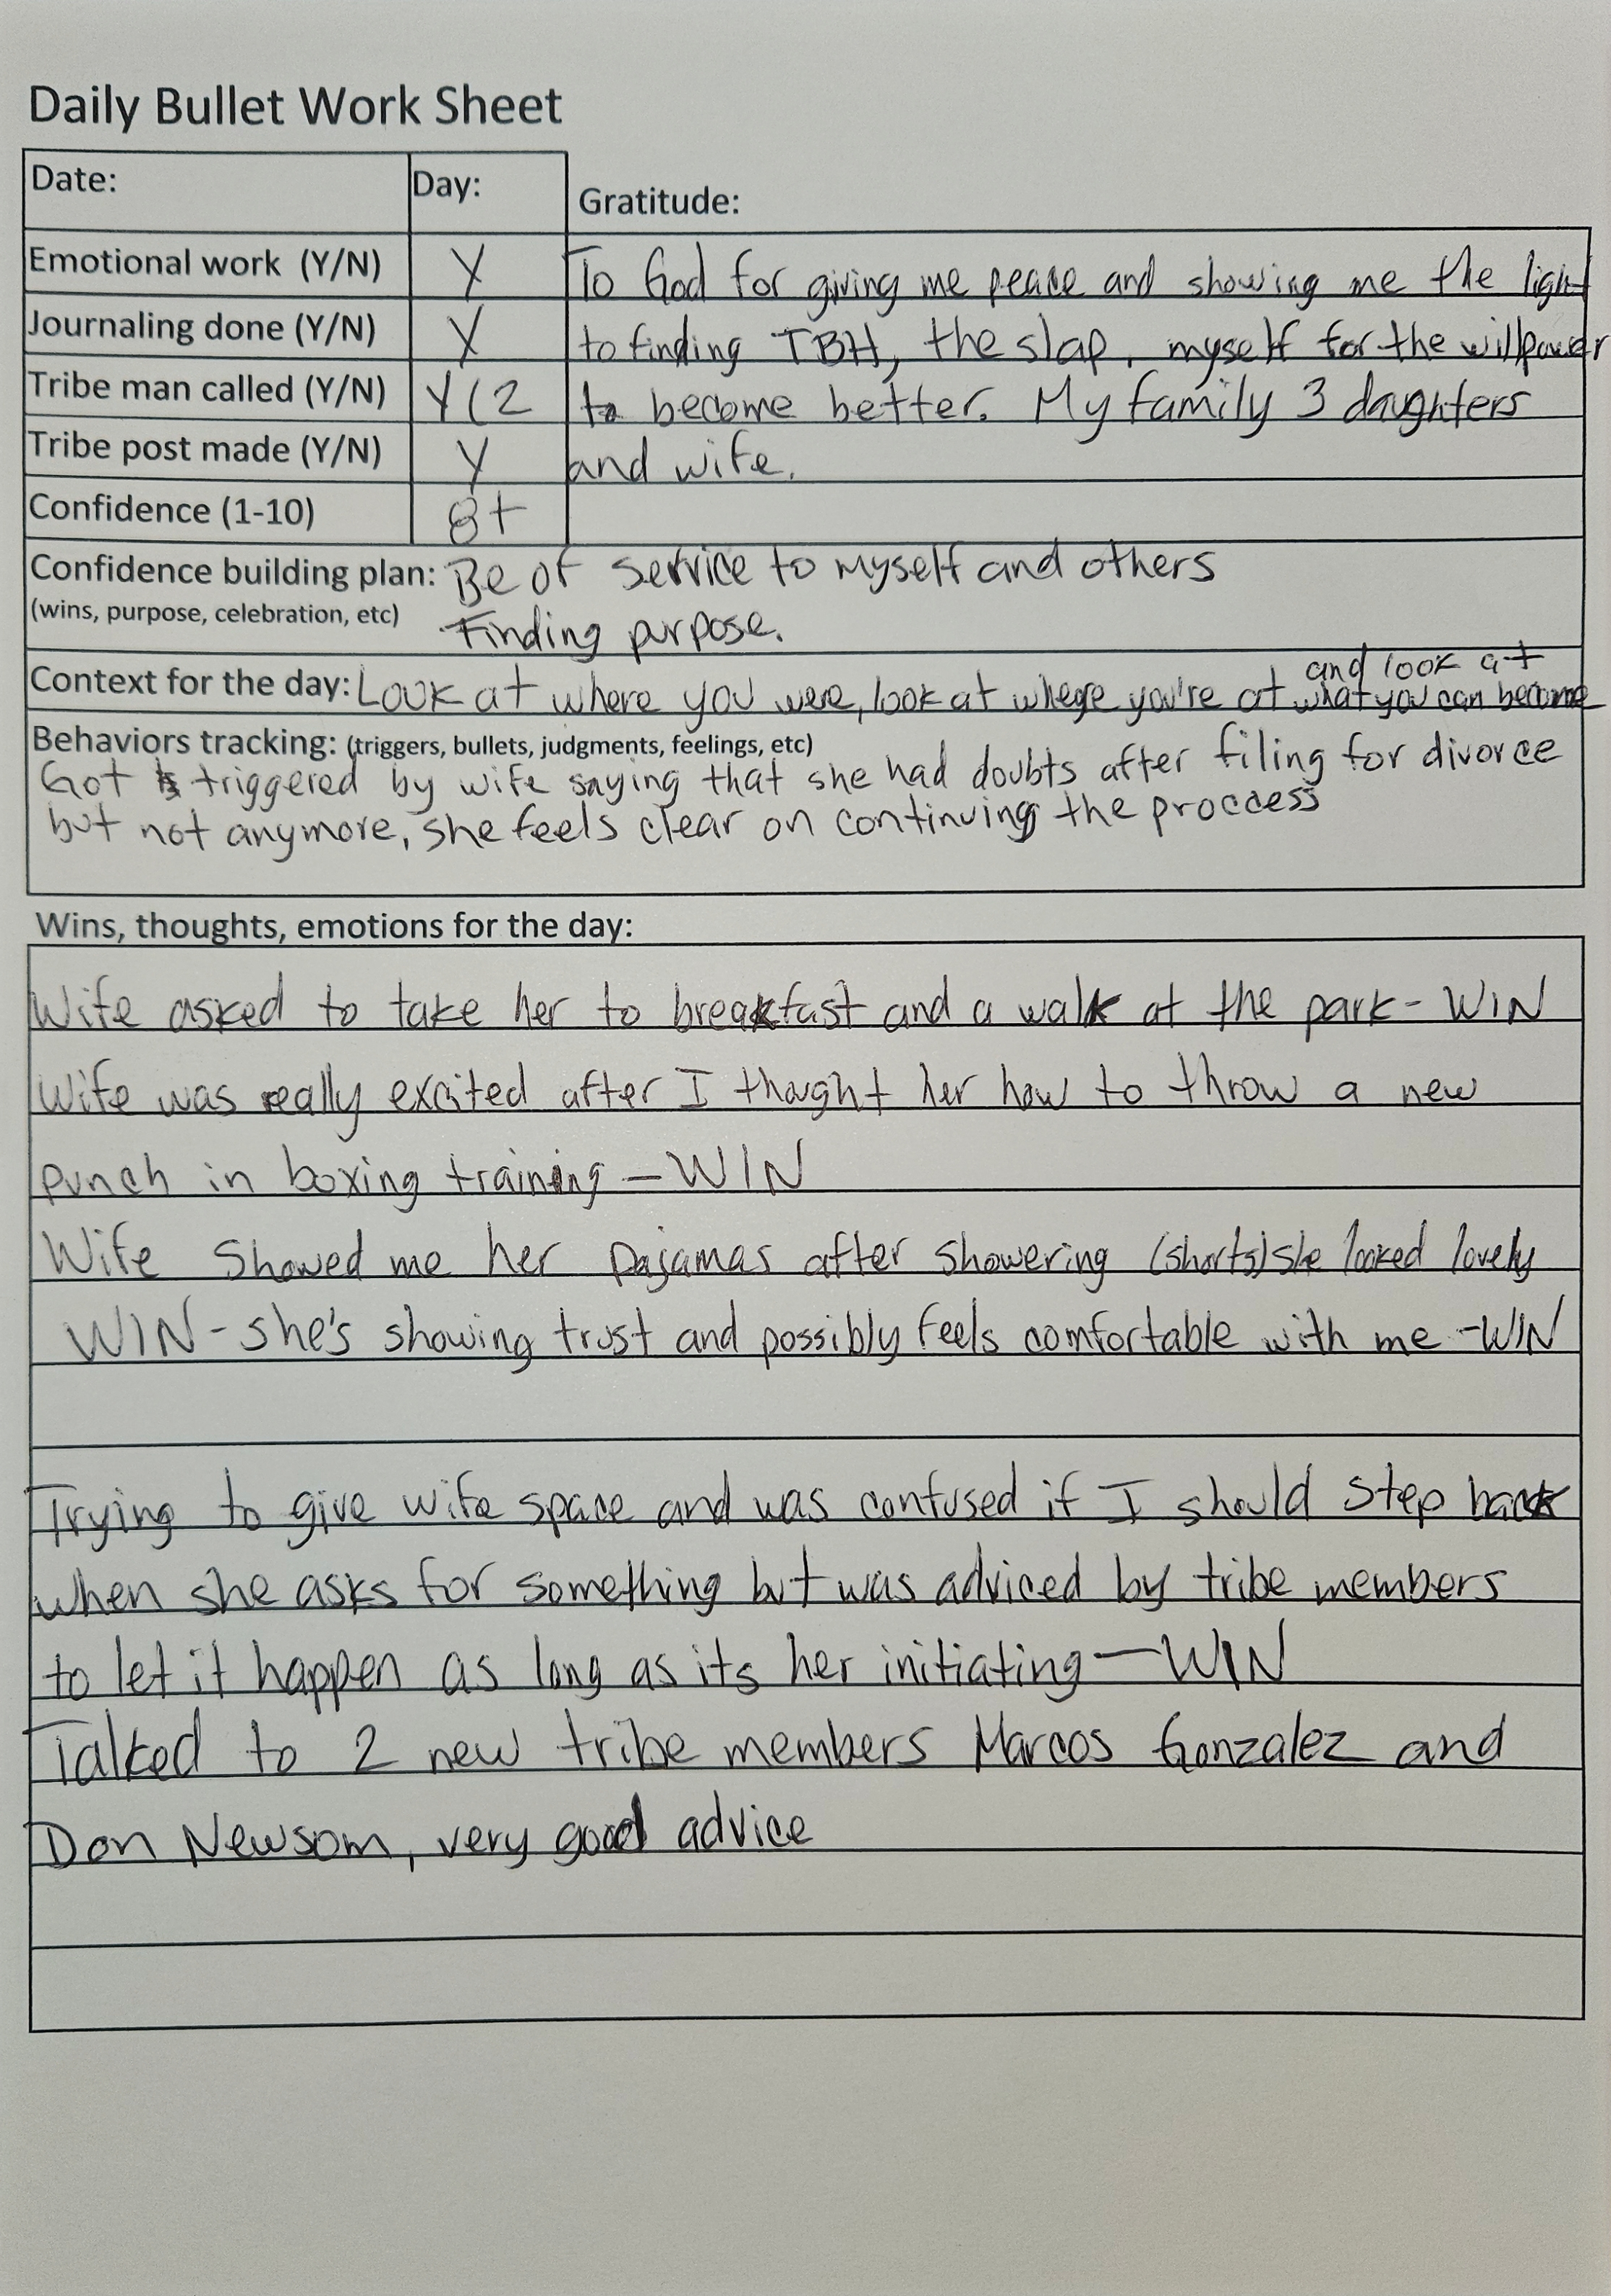 Daily Bullet Work Sheet
Date: Day: Gratitude:
Emotional work (Y/N) Y To God for giving me peace and showing me the light
Journaling done (Y/N) Y to finding TBH, the slap, myself for the willpower
Tribe man called (Y/N) Y(2 to become better. My family 3 daughters
Tribe post made (Y/N) Y and wife.
Confidence (1-10) 8+
Confidence building plan: Be of service to myself and others
(wins, purpose, celebration, etc) Finding purpose.
and look at
Context for the day: Look at where you were, look at where you're at what you can become
Behaviors tracking: (triggers, bullets, judgments, feelings, etc)
Got triggered by wife saying that she had doubts after filing for divorce
but not anymore, she feels clear on continuing the proccess
Wins, thoughts, emotions for the day:
Wife asked to take her to breakfast and a walk at the park - WIN
Wife was really excited after I thought her how to throw a new
punch in boxing training - WIN
Wife showed me her pajamas after showering (shorts) she looked lovely
WIN - she's showing trust and possibly feels comfortable with me - WIN
Trying to give wife space and was confused if I should step back
when she asks for something but was adviced by tribe members
to let it happen as long as its her initiating - WIN
Talked to 2 new tribe members Marcos Gonzalez and
Don Newsom, very good advice